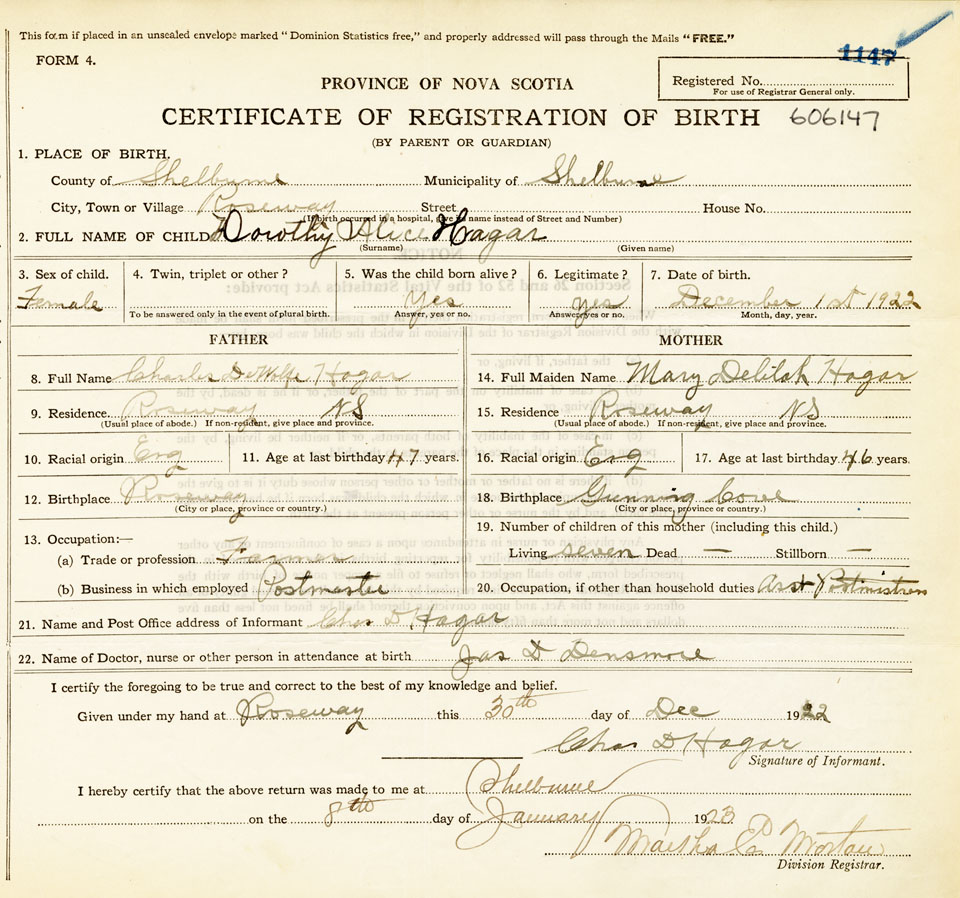 This form if placed in an unsealed envelope marked “Dominion Statistics free,” and properly addressed will pass through the Mails “FREE.”
FORM 4.
1147
Registered No.
For use of Registrar General only.
PROVINCE OF NOVA SCOTIA
CERTIFICATE OF REGISTRATION OF BIRTH 606147
(BY PARENT OR GUARDIAN)
1. PLACE OF BIRTH.
County of Shelburne Municipality of Shelburne
City, Town or Village Roseway Street House No.
(If birth occurred in a hospital, give its name instead of Street and Number)
2. FULL NAME OF CHILD Dorothy Alice Hagar
(Surname) (Given name)
3. Sex of child. 4. Twin, triplet or other? 5. Was the child born alive? 6. Legitimate? 7. Date of birth.
Female Yes yes December 1st 1922
To be answered only in the event of plural birth. Answer, yes or no. Answer, yes or no. Month, day, year.
FATHER
8. Full Name Charles DeWolfe Hagar
9. Residence Roseway NS
(Usual place of abode.) If non-resident, give place and province.
10. Racial origin Eng 11. Age at last birthday 47 years.
12. Birthplace Roseway
(City or place, province or country.)
13. Occupation:—
(a) Trade or profession Farmer
(b) Business in which employed Postmaster
MOTHER
14. Full Maiden Name Mary Delilah Hagar
15. Residence Roseway NS
(Usual place of abode.) If non-resident, give place and province.
16. Racial origin Eng 17. Age at last birthday 46 years.
18. Birthplace Gunning Cove
(City or place, province or country.)
19. Number of children of this mother (including this child.)
Living seven Dead — Stillborn —
20. Occupation, if other than household duties Asst Postmistress
21. Name and Post Office address of Informant Chas D Hagar
22. Name of Doctor, nurse or other person in attendance at birth Jas D Densmore
I certify the foregoing to be true and correct to the best of my knowledge and belief.
Given under my hand at Roseway this 30th day of Dec 1922
Chas D Hagar
Signature of Informant.
I hereby certify that the above return was made to me at Shelburne
on the 8th day of January 1923
Martha E Morton
Division Registrar.